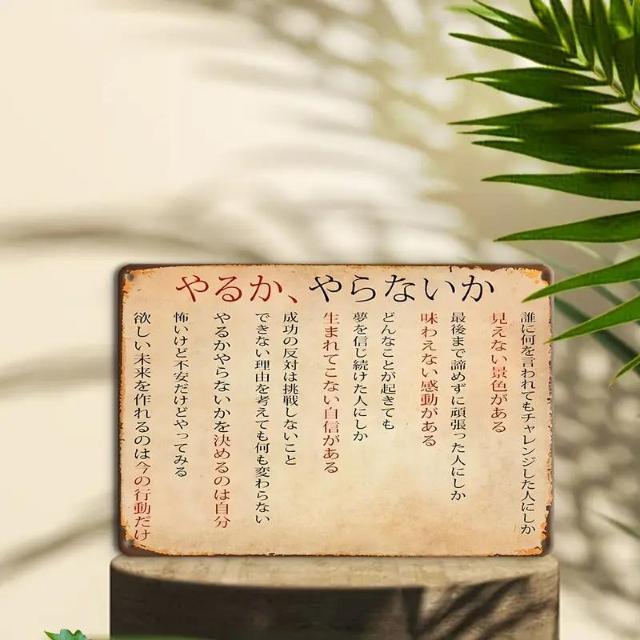 やるか、やらないか
誰に何を言われてもチャレンジした人にしか
見えない景色がある
最後まで諦めずに頑張った人にしか
味わえない感動がある
どんなことが起きても
夢を信じ続けた人にしか
生まれてこない自信がある
成功の反対は挑戦しないこと
できない理由を考えても何も変わらない
やるかやらないかを決めるのは自分
怖いけど不安だけどやってみる
欲しい未来を作れるのは今の行動だけ